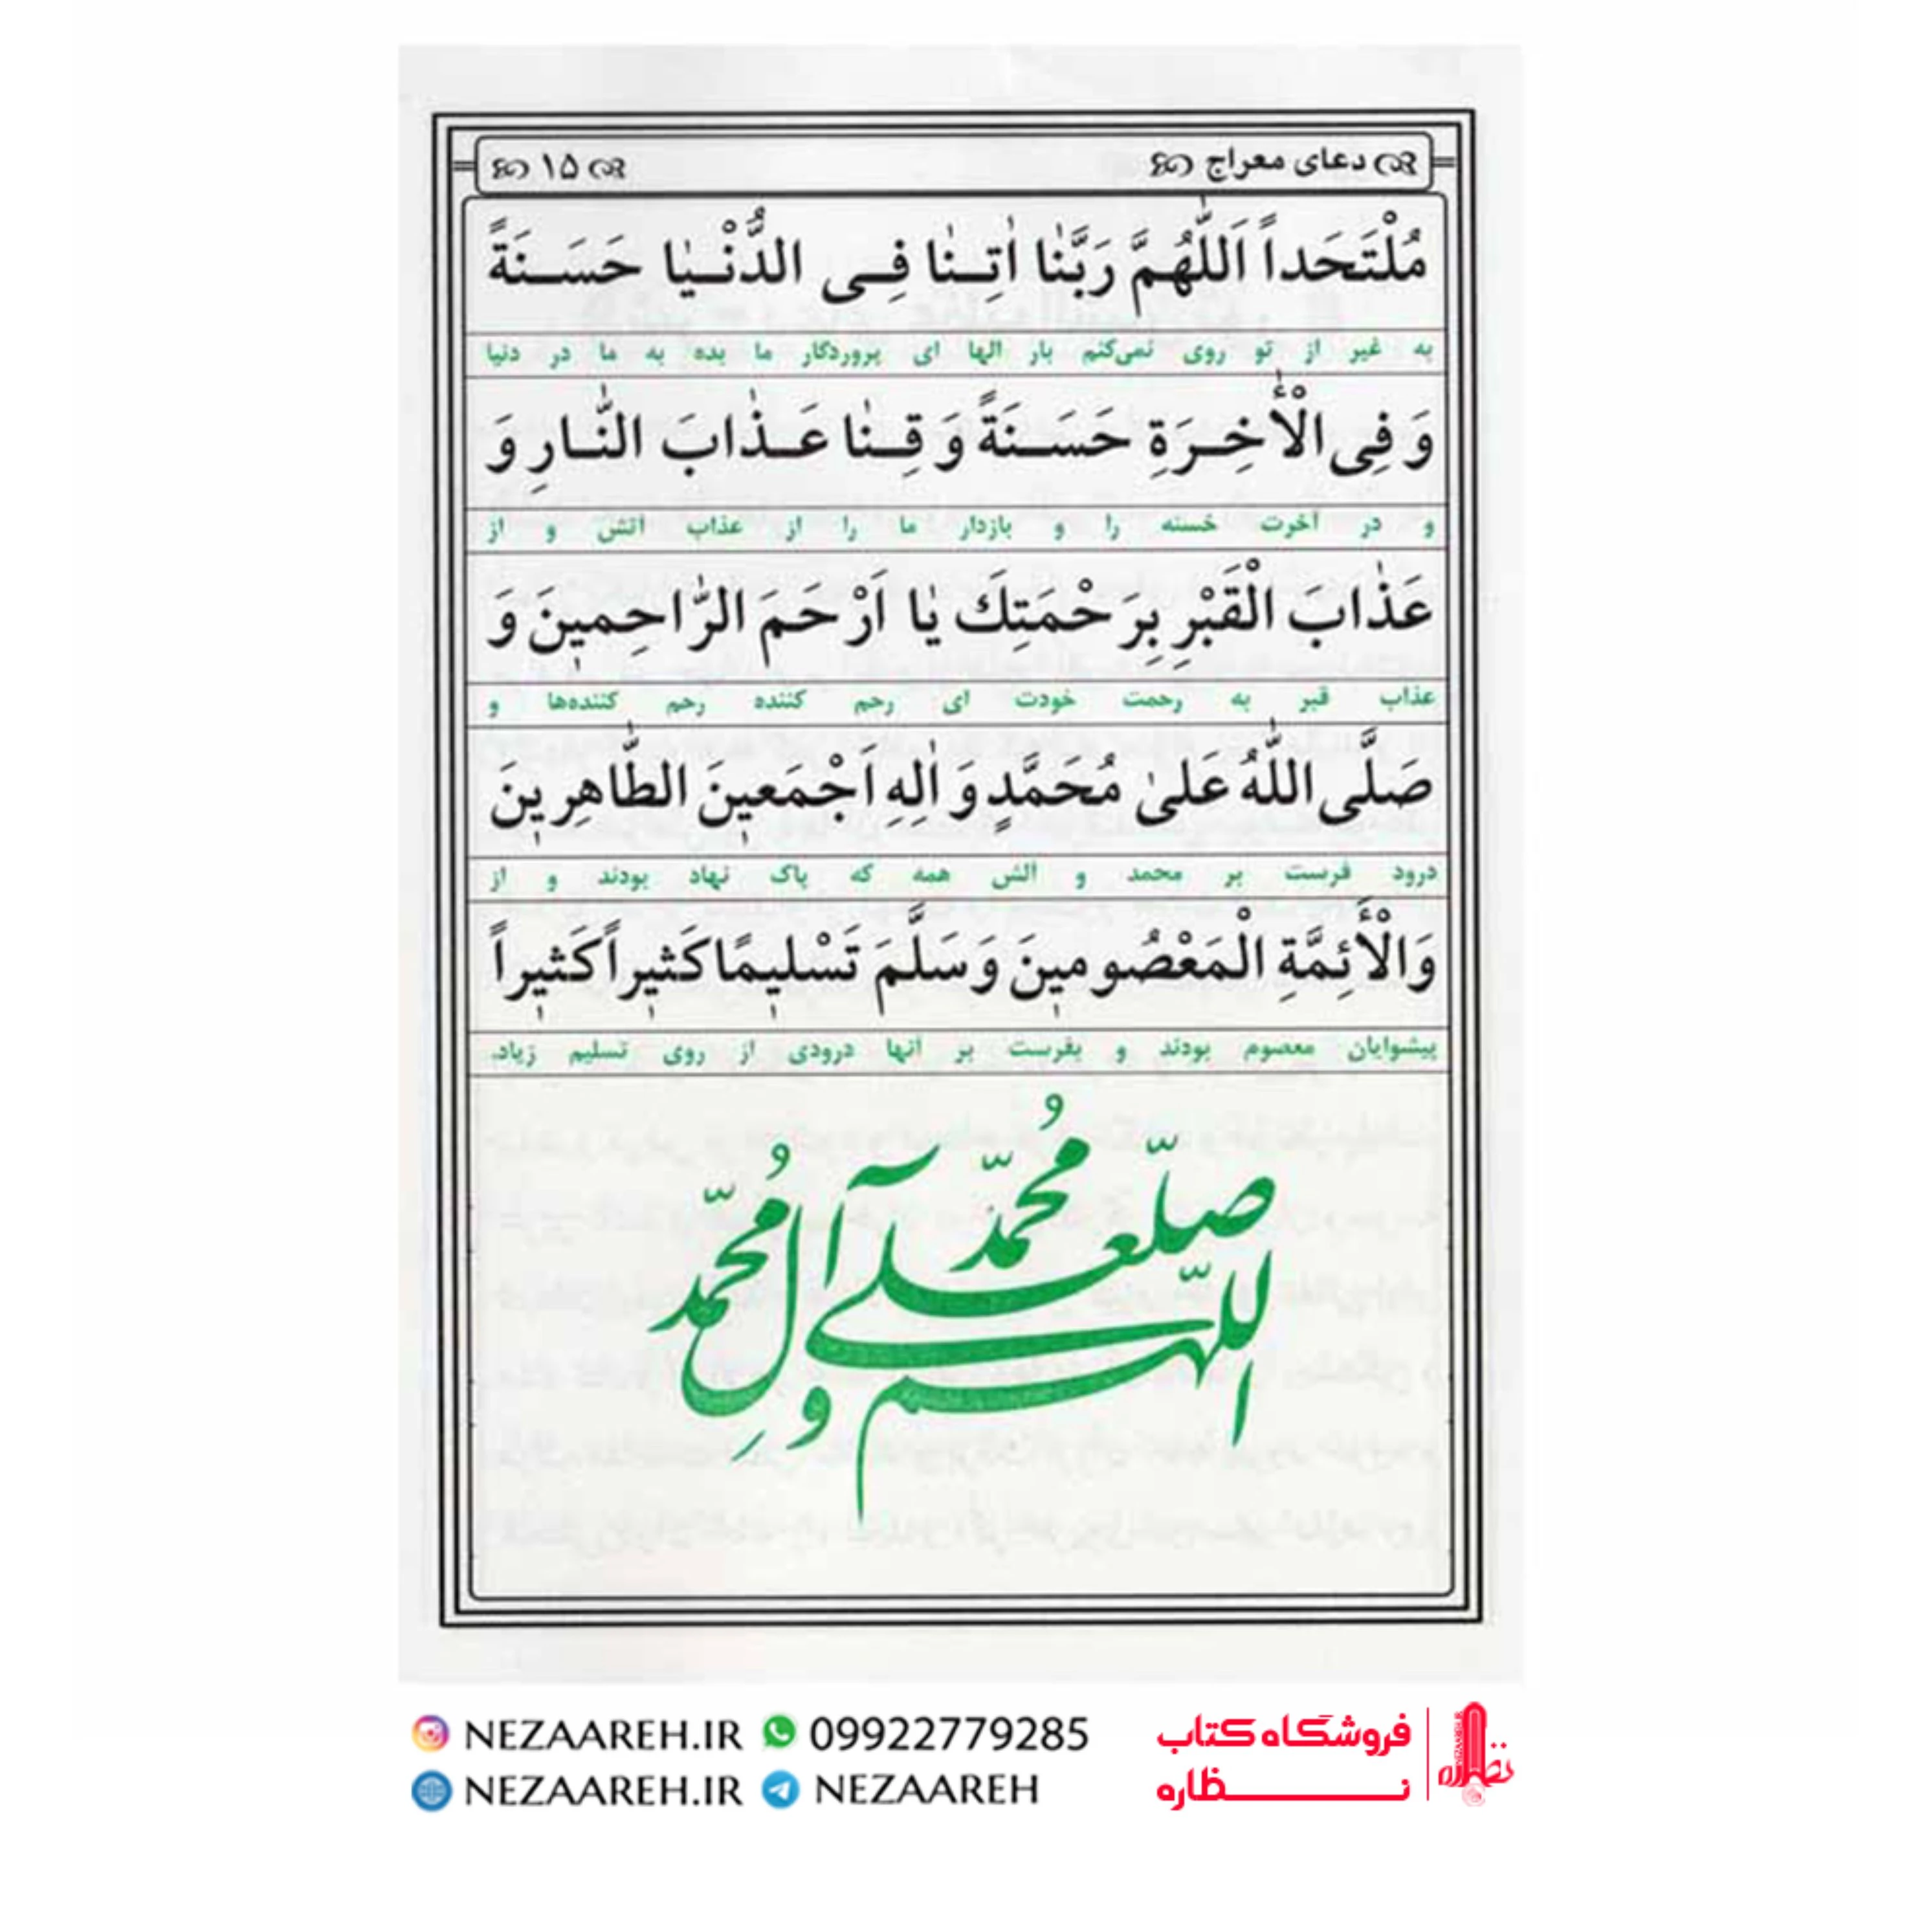 دعای معراج ۱۵
مُلْتَحَداً اَللّٰهُمَّ رَبَّنٰا اٰتِـنٰا فِـی الدُّنْـیٰا حَسَـنَةً
به غیر از تو روی نمی‌کنم بار الها ای پروردگار ما بده به ما در دنیا
وَ فِی الْأٰخِـرَةِ حَسَـنَةً وَ قِـنٰا عَـذٰابَ النّٰـارِ وَ
و در آخرت حسنه را و بازدار ما را از عذاب آتش و از
عَذٰابَ الْقَبْرِ بِرَحْمَتِكَ یٰا اَرْحَمَ الرّٰاحِمینَ وَ
عذاب قبر به رحمت خودت ای رحم کننده رحم کننده‌ها و
صَلَّی اللّٰهُ عَلیٰ مُحَمَّدٍ وَ اٰلِهِ اَجْمَعینَ الطّٰاهِرینَ
درود فرست بر محمد و آلش همه که پاک نهاد بودند و از
وَالْأَئِمَّةِ الْمَعْصُومینَ وَ سَلَّمَ تَسْلیمًا کَثیراً کَثیراً
پیشوایان معصوم بودند و بفرست بر آنها درودی از روی تسلیم زیاد.
اللّهم صلّ علی محمّد و آل محمّد
NEZAAREH.IR 09922779285
NEZAAREH.IR NEZAAREH
فروشگاه کتاب
نـــظاره